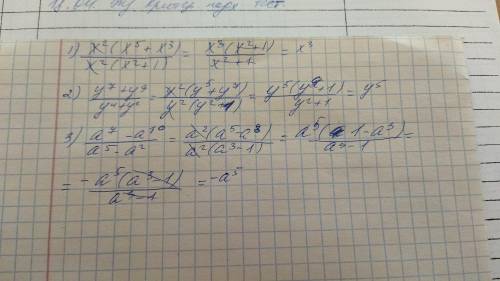 1) x²(x⁵+x³)/x²(x²+1) = x³(x²+1)/x²+1 = x³
2) y⁷+y⁹/y⁴+y² = y²(y⁵+y⁷)/y²(y²+1) = y⁵(y²+1)/y²+1 = y⁵
3) a⁷-a¹⁰/a⁵-a² = a²(a⁵-a⁸)/a²(a³-1) = a⁵(1-a³)/a³-1 =
= -a⁵(a³-1)/a³-1 = -a⁵